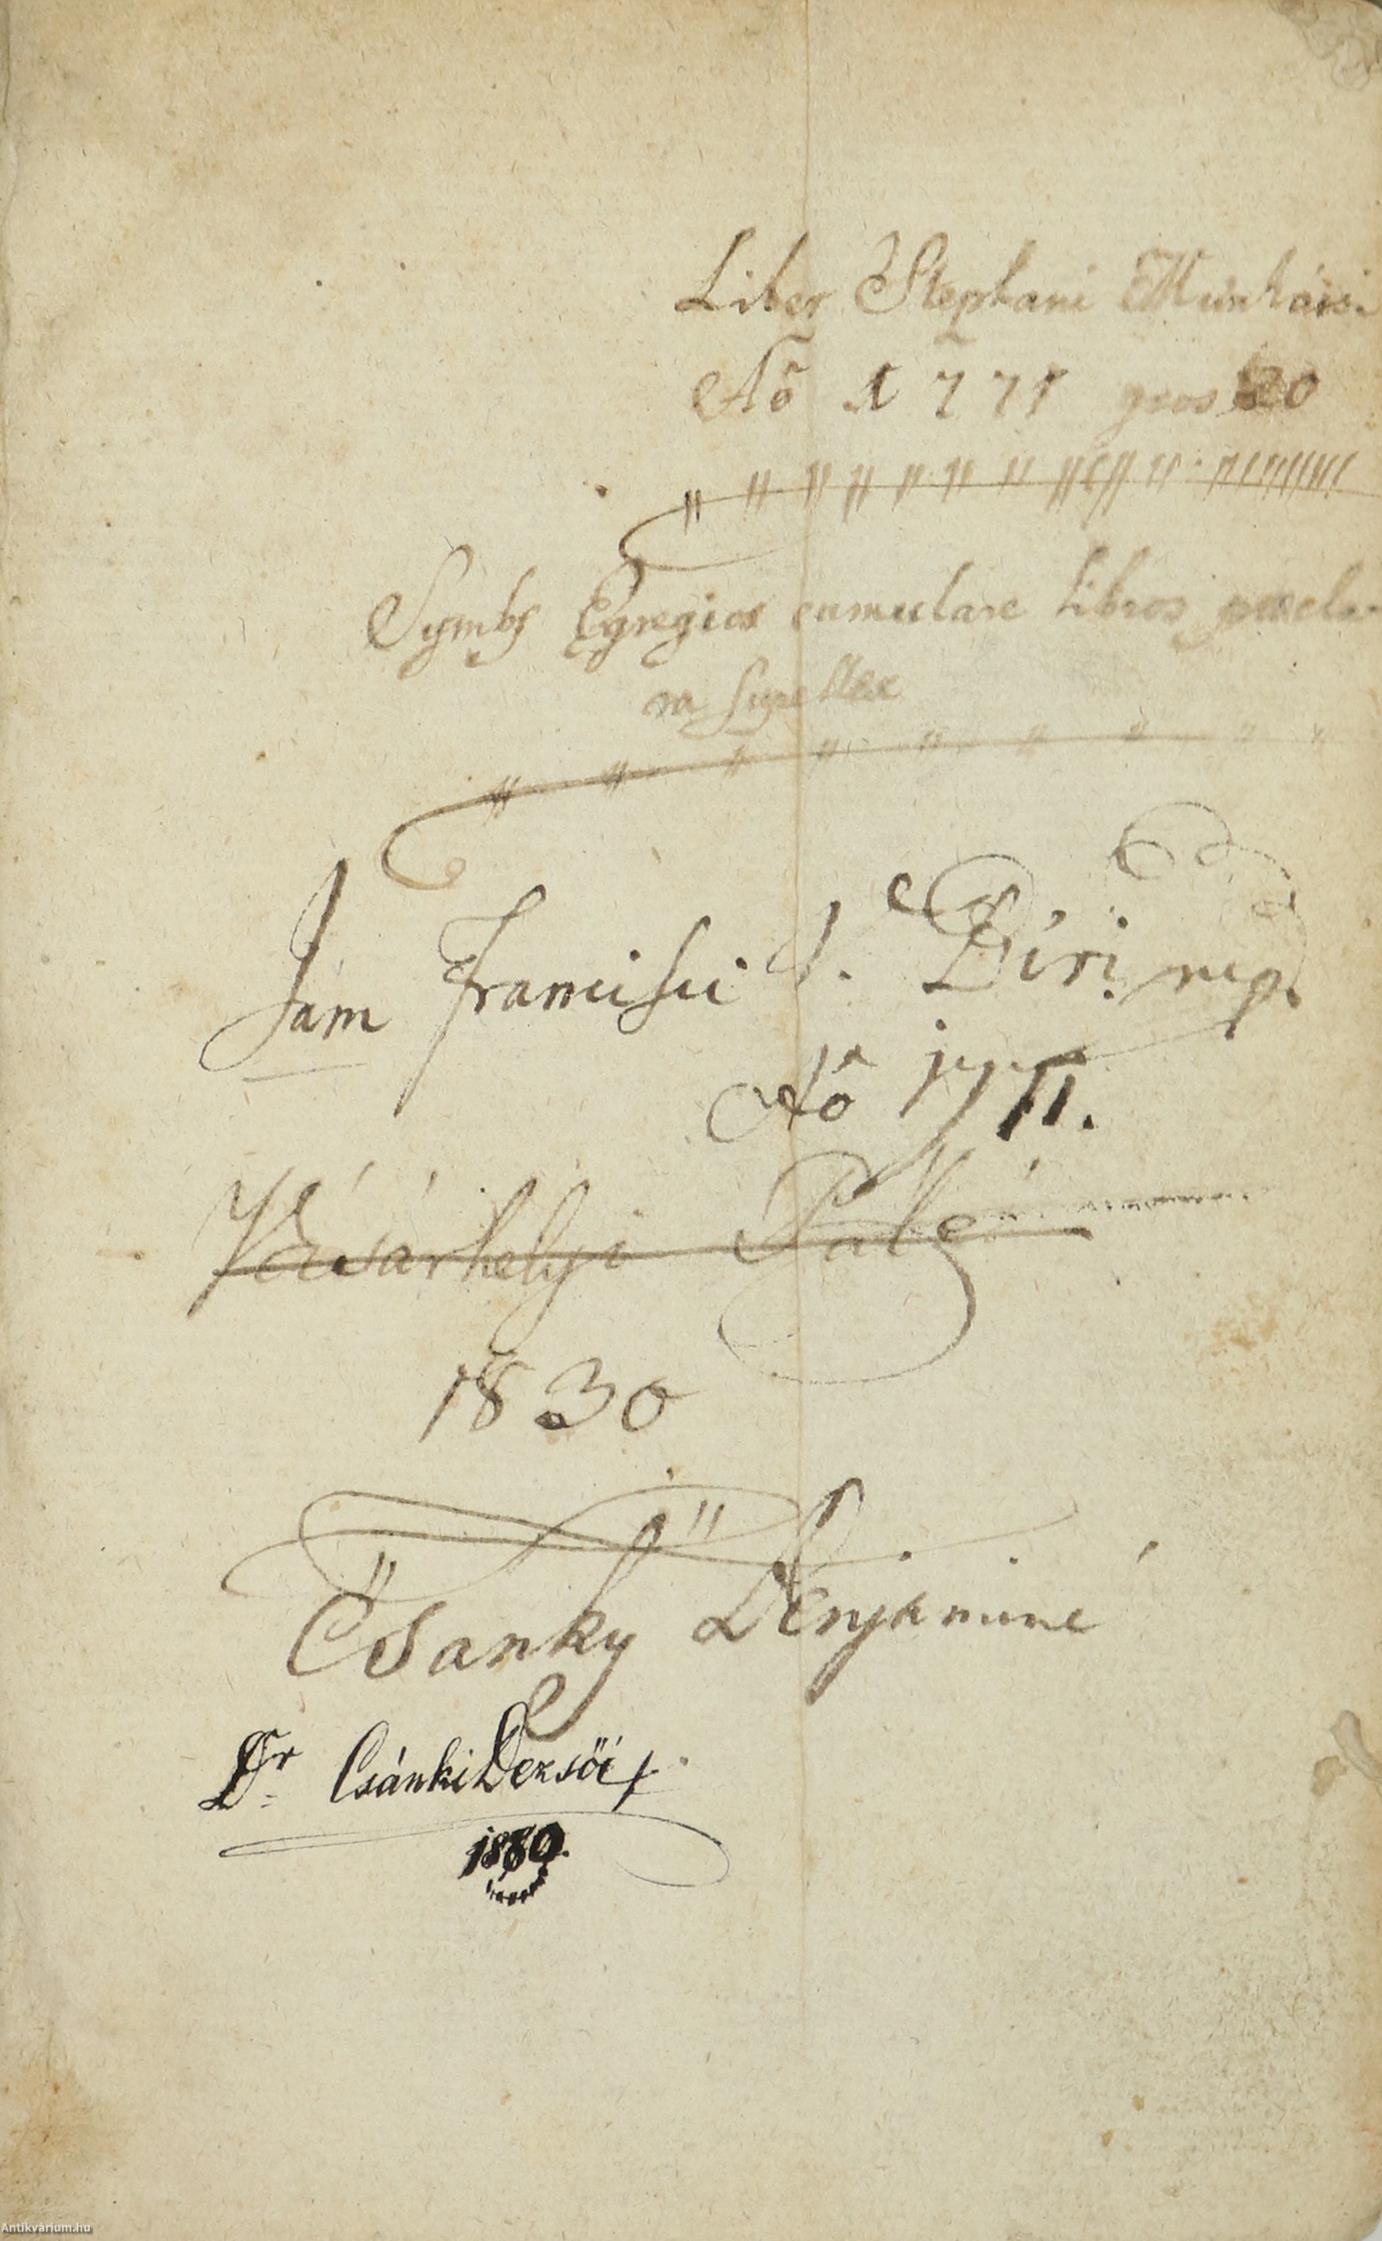 Liber Stephani Munkácsi
Aõ 1771 gros 20
Symb Egregios cumulare libros praecla-
ra supellex
Jám Francisci S. Bíri mp.
Aô 1771.
Vásárhelyi Pálé
1830
Csanky Benjáminé
Dr Csánki Dezsőé
1880.
Antikvárium.hu